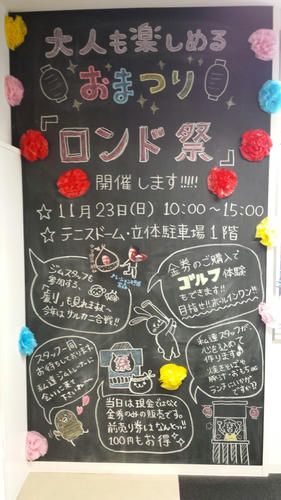 大人も楽しめる
おまつり
『ロンド祭』
開催します!!!!!
☆11月23日(日) 10:00〜15:00
☆テニスドーム・立体駐車場1階
ジムスタッフも
参加する、
「踊り」も見れますよ〜
今年はサルカニ合戦!!
金券のご購入で
ゴルフ体験
もできます!!
目指せ!!ホールインワン!!
スタッフ一同
お待ちしております。
私達ジムトレーナーに
会いに来て
下さいね〜
私達スタッフが
心を込めて
作ります♪
焼きそばや
豚汁・おもちetc
ランチにいかが
ですか!?
祭
当日は現金ではなく
金券のみの販売です。
前売り券はなんと!!
100円もお得